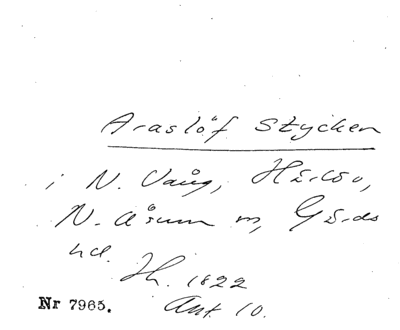 Araslöf stycken
i N. Vång, Härlöv,
N. Åsum m, Gärds
hd.
Jh. 1822
Nr 7965.
Ant. 10.